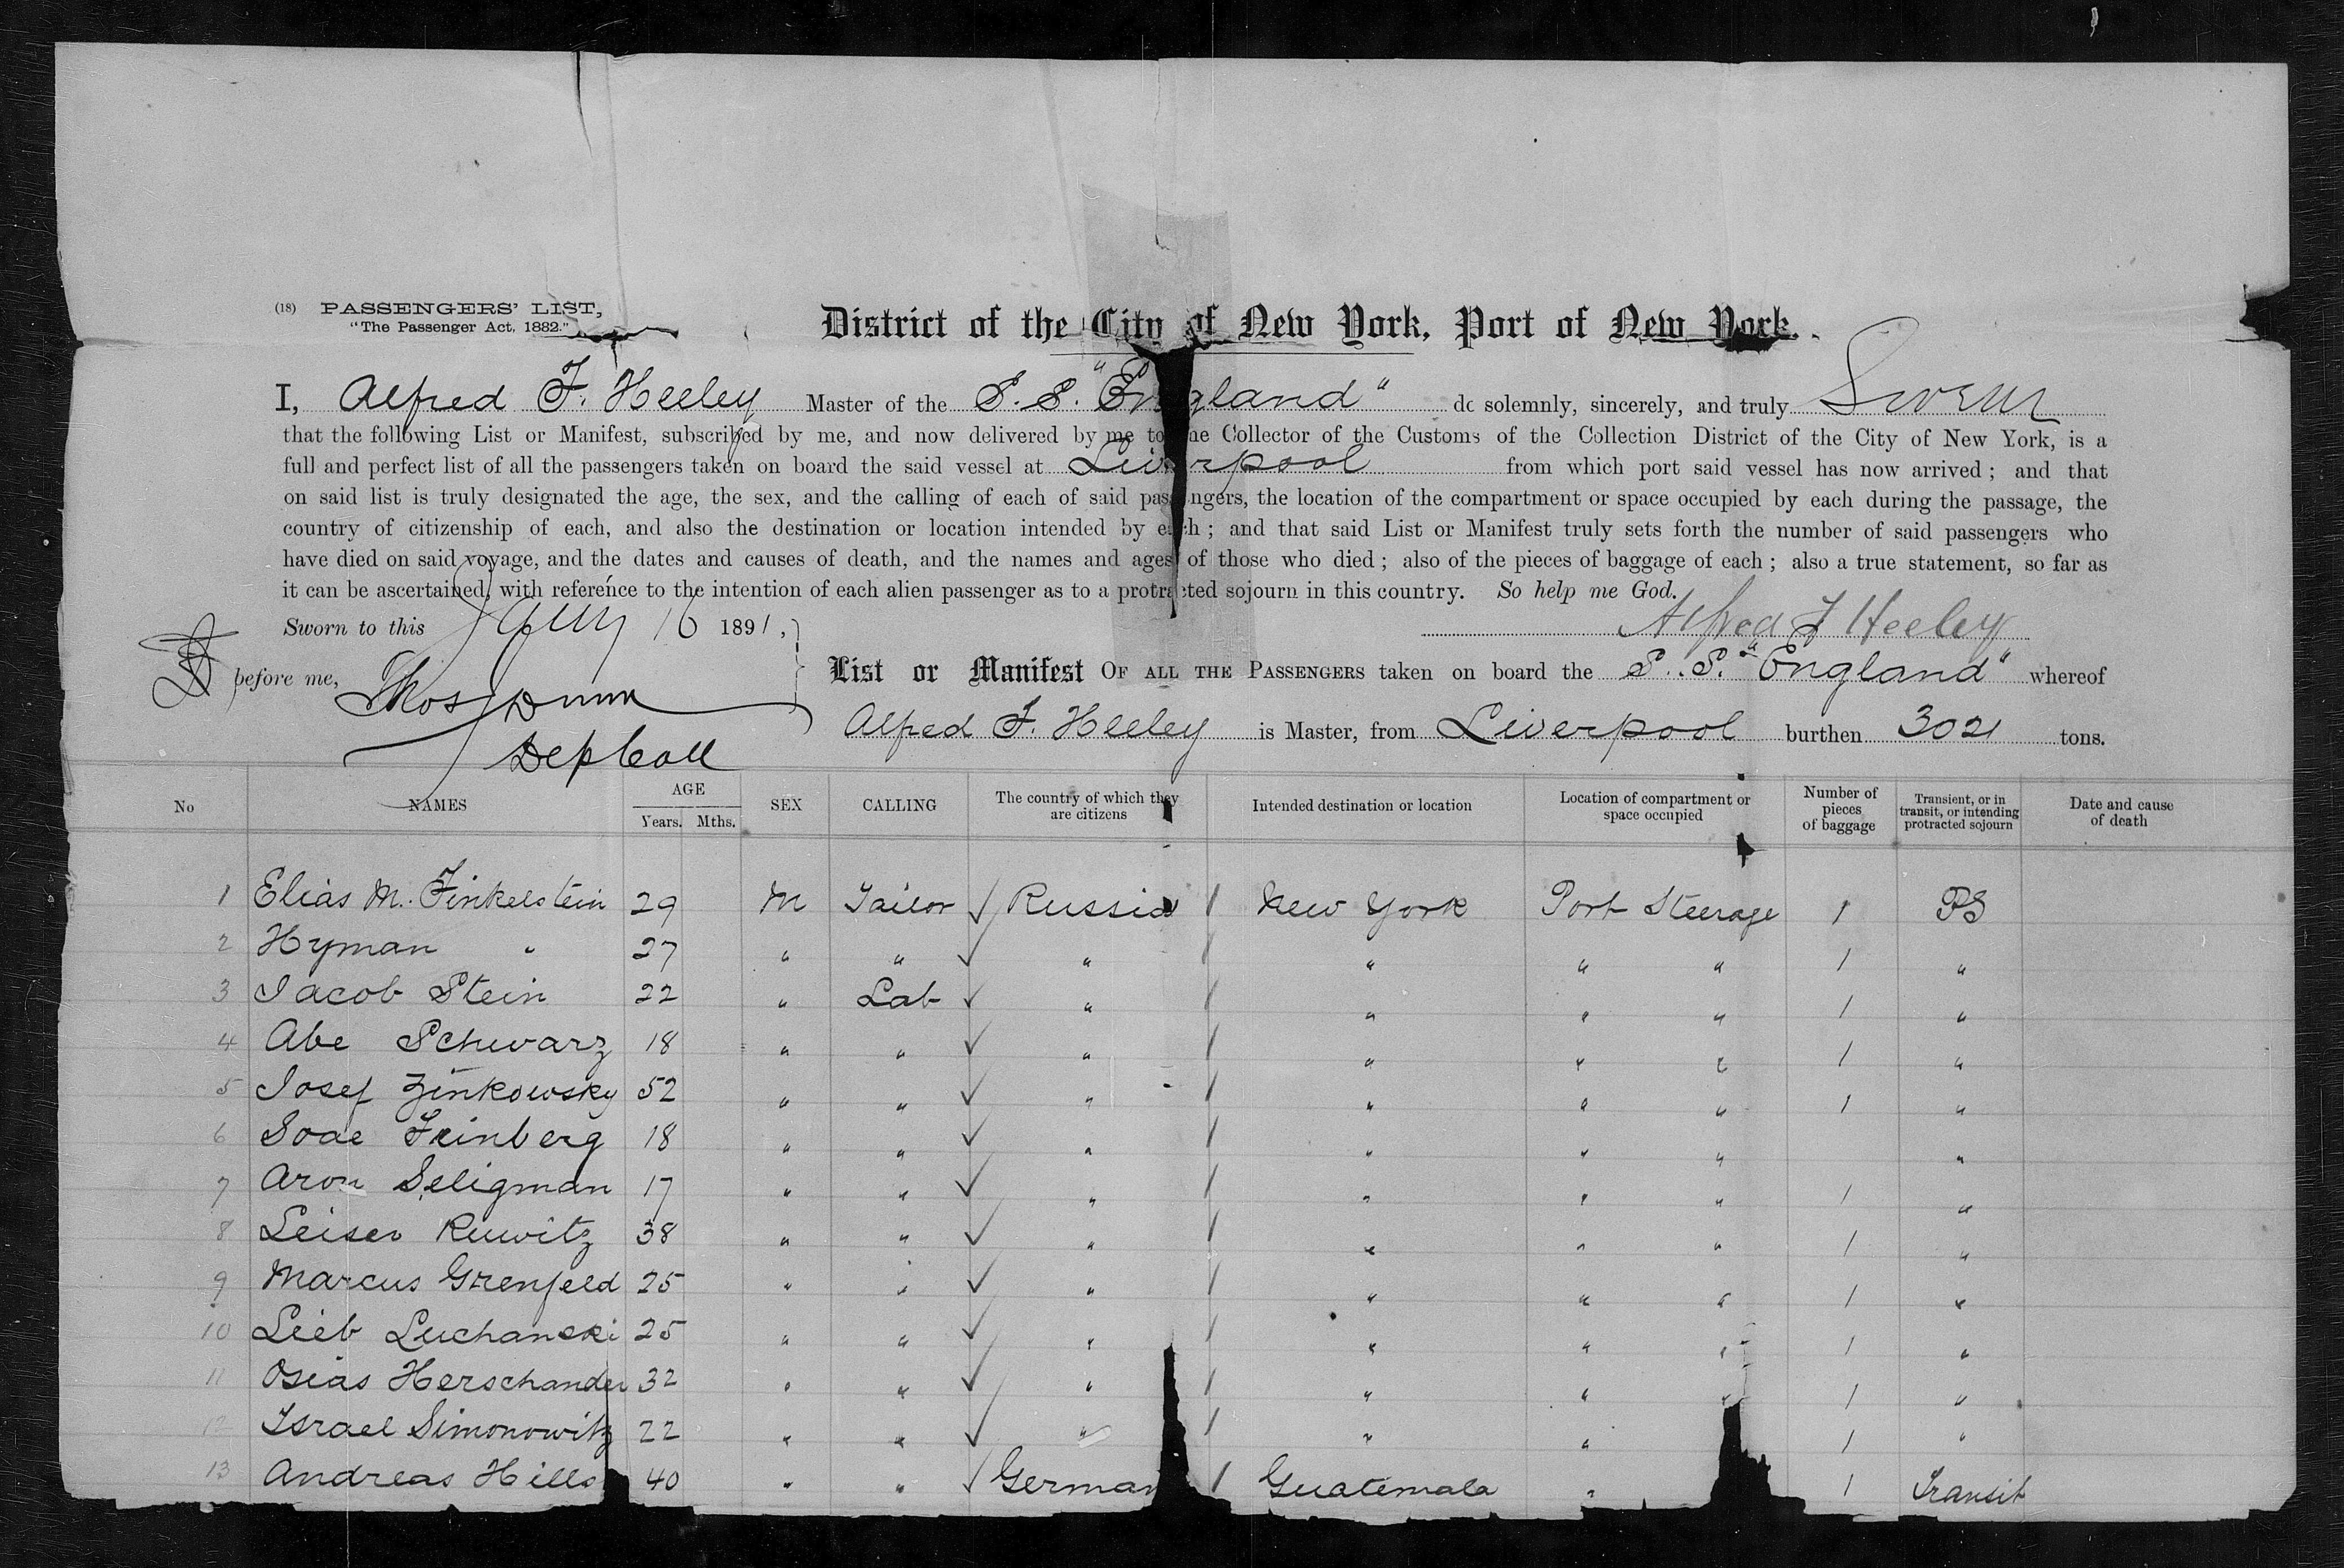 (18) PASSENGERS' LIST,
"The Passenger Act, 1882."
District of the City of New York, Port of New York.
I, Alfred F. Heeley Master of the S.S. "England" do solemnly, sincerely, and truly Swear
that the following List or Manifest, subscribed by me, and now delivered by me to the Collector of the Customs of the Collection District of the City of New York, is a
full and perfect list of all the passengers taken on board the said vessel at Liverpool from which port said vessel has now arrived; and that
on said list is truly designated the age, the sex, and the calling of each of said passengers, the location of the compartment or space occupied by each during the passage, the
country of citizenship of each, and also the destination or location intended by each; and that said List or Manifest truly sets forth the number of said passengers who
have died on said voyage, and the dates and causes of death, and the names and ages of those who died; also of the pieces of baggage of each; also a true statement, so far as
it can be ascertained, with reference to the intention of each alien passenger as to a protracted sojourn in this country. So help me God.
Sworn to this 16 1891, Alfred F Heeley
before me, Thos Dunn
Dep Coll
List or Manifest OF ALL THE PASSENGERS taken on board the S.S. "England" whereof
Alfred F. Heeley is Master, from Liverpool burthen 3021 tons.
No NAMES AGE Years. Mths. SEX CALLING The country of which they are citizens Intended destination or location Location of compartment or space occupied Number of pieces of baggage Transient, or in transit, or intending protracted sojourn Date and cause of death
1 Elias M. Finkelstein 29 M Tailor √ Russia / New York Port Steerage 1 PS
2 Hyman " 27 " " √ " / " " " 1 "
3 Jacob Stein 22 " Lab √ " / " " " 1 "
4 Abe Schwarz 18 " " √ " / " " " 1 "
5 Josef Zinkowsky 52 " " √ " / " " " 1 "
6 Feinberg 18 " " √ " / " " " "
7 Aron Seligman 17 " " √ " / " " " 1 "
8 Leiser Ruwitz 38 " " √ " / " " " 1 "
9 Marcus Grenfeld 25 " " √ " / " " " 1 "
10 Leib Luchanski 25 " " √ " / " " " 1 "
11 Osias Herschander 32 " " √ " / " " " 1 "
12 Israel Simonowitz 22 " " √ " / " " 1 "
13 Andreas Hills 40 " " √ German / Guatemala " 1 Transit